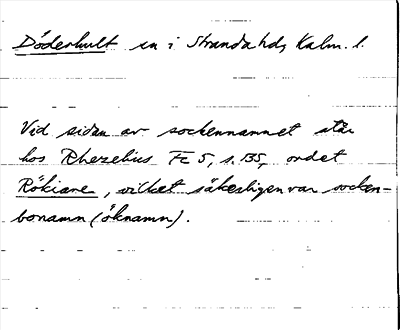 Döderhult sn i Stranda hd, Kalm. l.
Vid sidan av sockennamnet står
hos Rhezelius Fc 5, s. 135, ordet
Rökiare, vilket säkerligen var socken-
bonamn (öknamn).